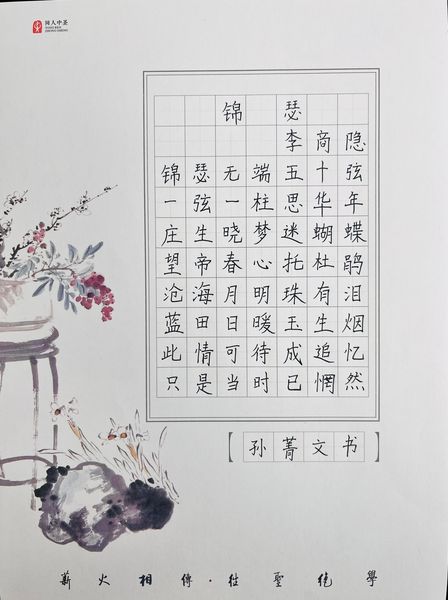 同人中圣
TONG REN
ZHONG SHENG
锦 瑟
李商隐
锦瑟无端五十弦
一弦一柱思华年
庄生晓梦迷蝴蝶
望帝春心托杜鹃
沧海月明珠有泪
蓝田日暖玉生烟
此情可待成追忆
只是当时已惘然
【孙菁文书】
薪火相傳·往聖绝學